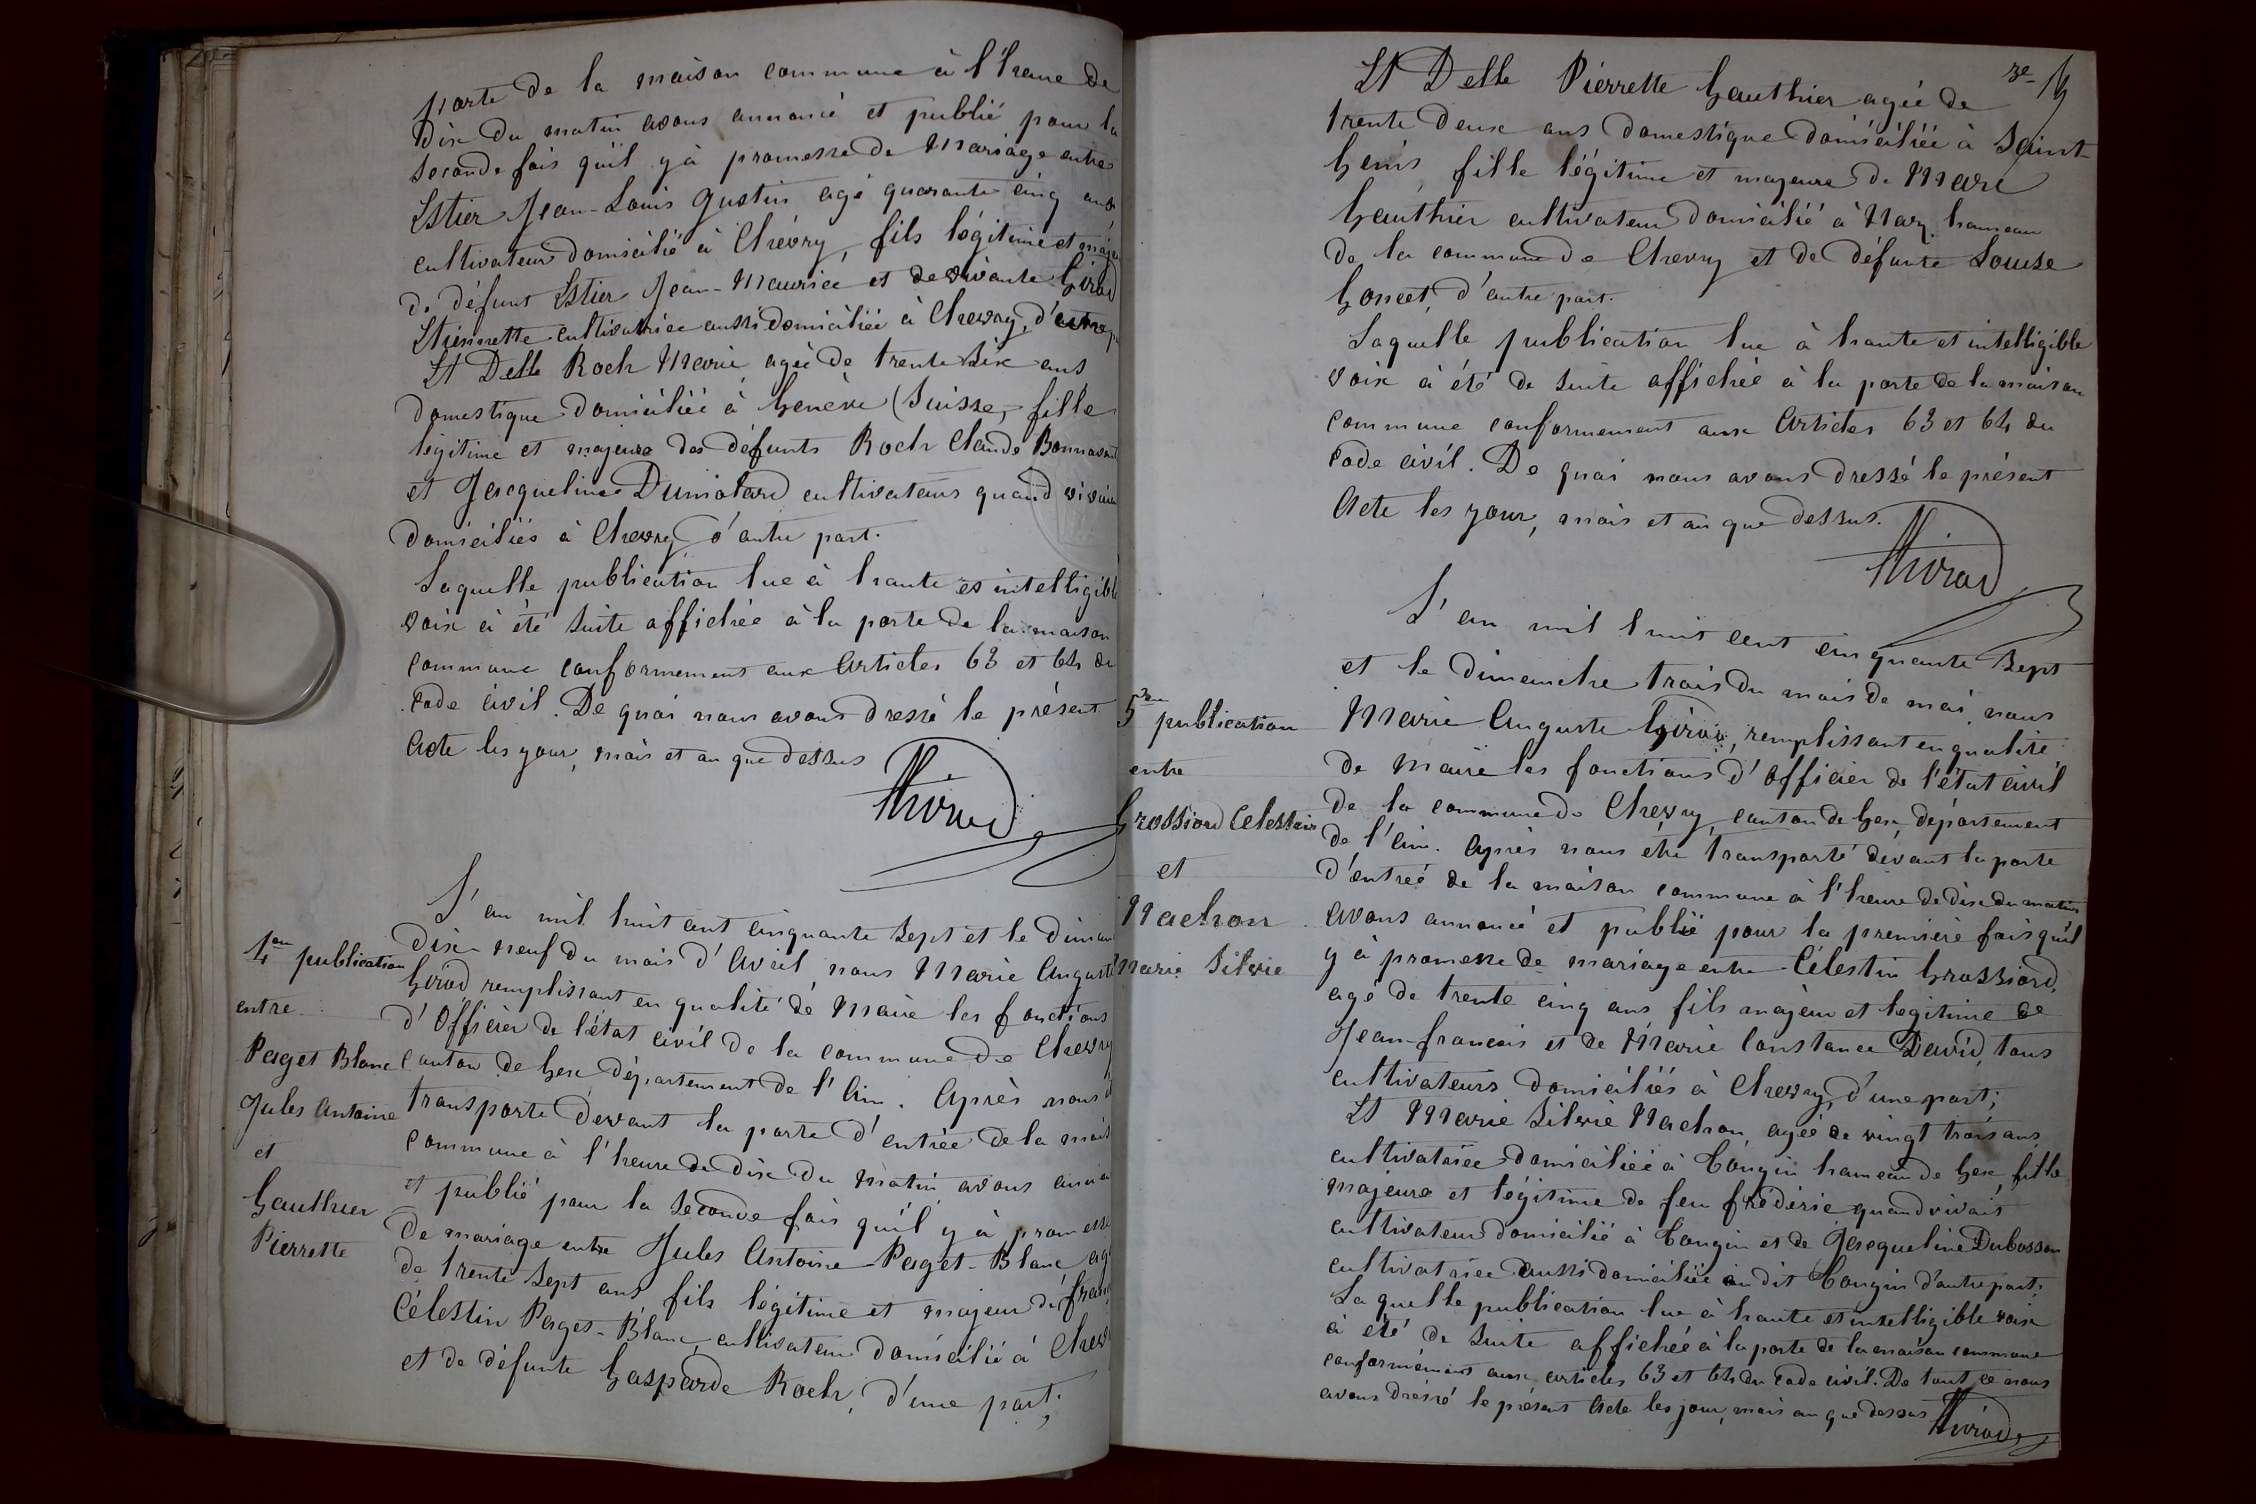 porte de la maison commune à l'heure de
dix du matin avons annoncé et publié pour la
seconde fois qu'il y à promesse de Mariage entre
Estier Jean-Louis Justin agé quarante cinq ans
cultivateur domicilié à Chévry, fils légitime et majeu
de défunt Estier Jean-Maurice et de vivante Girod
Etiennette cultivatrice aussi domiciliée à Chevry, d'une p
Et Delle Roch Marie agée de trente six ans
domestique domiciliée à Genève (Suisse, fille
légitime et majeure des défunts Roch Claude Bonnav
et Jacqueline Dumolard cultivateurs quand vivai
domiciliés à Chevry d'autre part.
Laquelle publication lue à haute et intelligible
voix à été suite affichée à la porte de la maison
commune conformement aux Articles 63 et 64 du
Code civil. De quoi nous avons dressé le présent
Acte les jour, mois et an que dessus
AGirod
L'an mil huit cent cinquante sept et le Diman
4em publication
dix-neuf du mois d'Avril, nous Marie Auguste
Girod remplissant en qualité de Maire les fonctions
entre
d'Officier de l'état civil de la commune de Chevry
Paget Blanc
canton de Gex département de l'Ain. Après nous ê
Jules Antoine
transporté devant la porte d'entrée de la mais
et
commune à l'heure de dix du matin avons anno
Gauthier
et publié pour la seconde fois qu'il y à promesse
Pierrette
de mariage entre Jules Antoine Paget-Blanc ag
de trente sept ans fils légitime et majeur de fran
Célestin Paget-Blanc, cultivateur domicilié à Chev
et de défunte Gasparde Roch, d'une part;
Et Delle Pierrette Gauthier agée de
trente deux ans domestique domiciliée à Saint
Genis, fille légitime et majeure de Marc
Gauthier cultivateur domicilié à Naz hameau
de la commune de Chevry et de défunte Louise
Goncet, d'autre part.
Laquelle publication lue à haute et intelligible
voix à été de suite affichée à la porte de la maison
commune conformement aux Articles 63 et 64 du
Code civil. De quoi nous avons dressé le présent
Acte les jour, mois et an que dessus.
AGirod
L'an mil huit cent cinquante sept
et le dimanche trois du mois de mai, nous
5em publication
Marie Auguste Girod, remplissant en qualité
entre
de Maire les fonctions d'Officier de l'état civil
Grossiord Celestin
de la commune de Chevry, canton de Gex, département
de l'Ain. Après nous être transporté devant la porte
et
d'entrée de la maison commune à l'heure de dix du matin
Nachon
avons annoncé et publié pour la première fois qu'il
Marie Silvie
y à promesse de mariage entre Célestin Grossiord,
agé de trente cinq ans fils majeur et légitime de
Jean-francois et de Marie Constance David, tous
cultivateurs domiciliés à Chevry, d'une part;
Et Marie Silvie Nachon, agée de vingt trois ans
cultivatrice domiciliée à Tougin hameau de Gex, fille
majeure et légitime de feu frédéric quand vivait
cultivateur domicilié à Tougin et de Jacqueline Dubosson
cultivatrice aussi domiciliée au dit Tougin d'autre part.
La quelle publication lue à haute et intelligible voix
à été de suite affichée à la porte de la maison commune
conformément aux articles 63 et 64 du Code civil. De tout ce nous
avons dressé le présent Acte les jour, mois an que dessus
AGirod